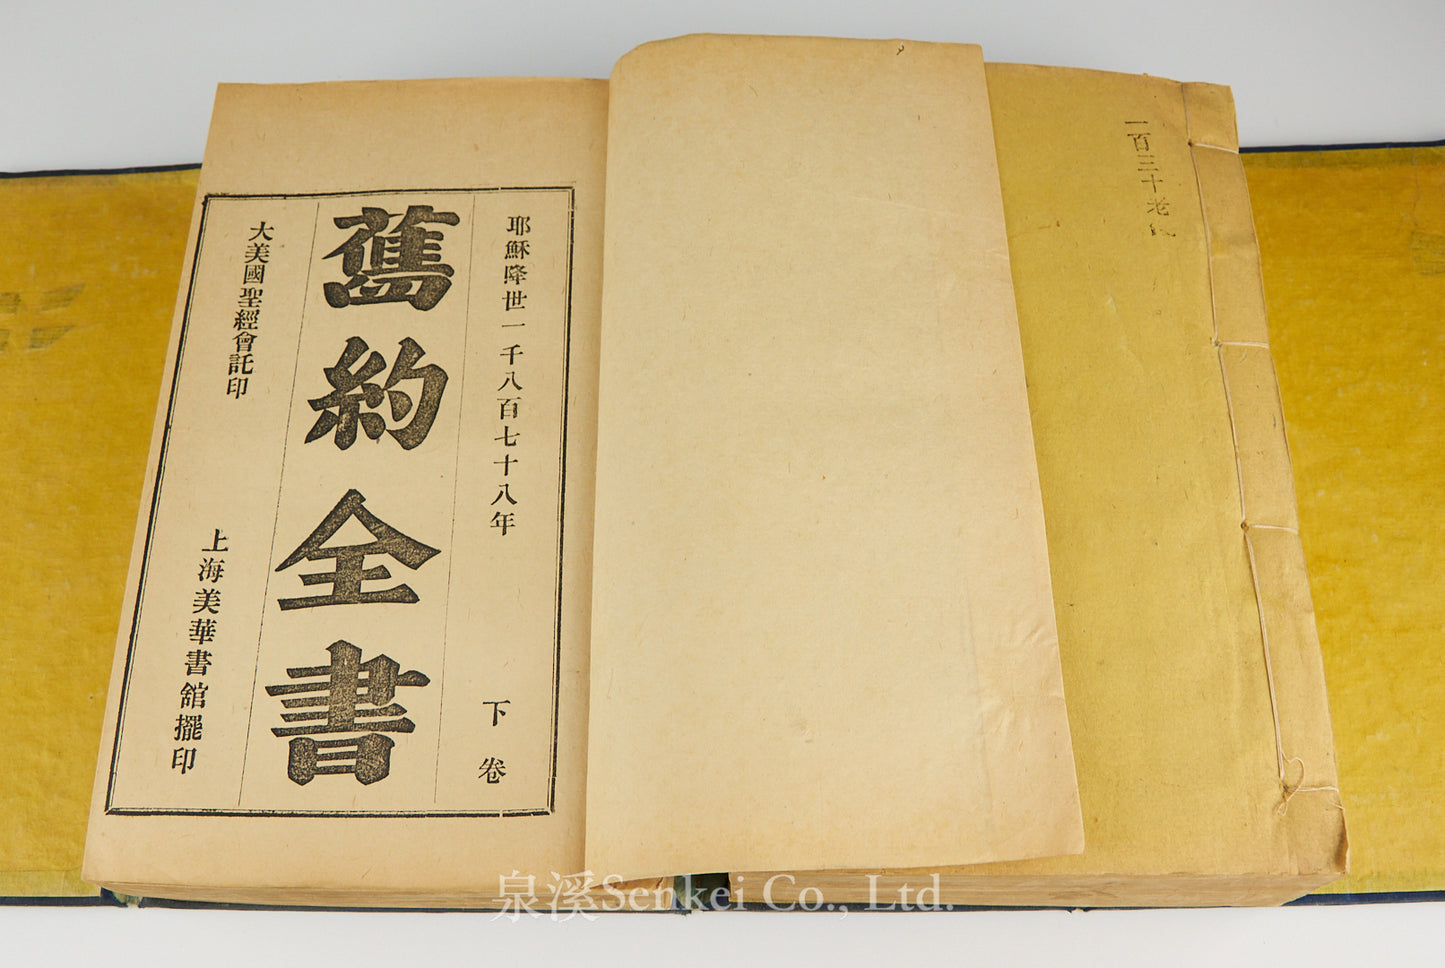 一百三十老
耶穌降世一千八百七十八年
下卷
舊約全書
大美國聖經會託印
上海美華書館擺印
泉溪Senkei Co., Ltd.